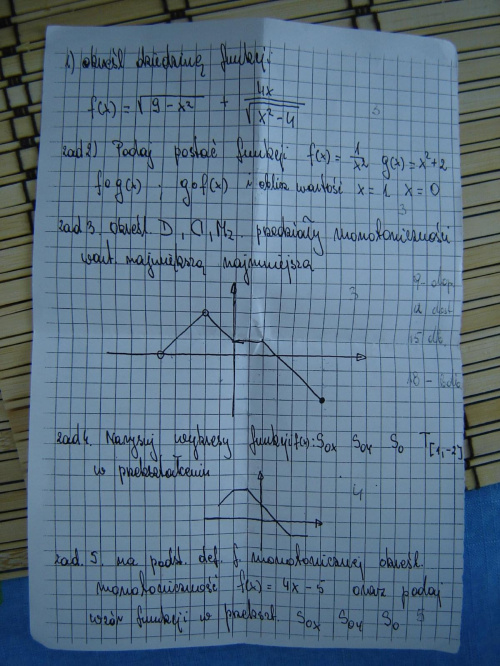 1) określ dziedzinę funkcji
f(x) = √9 - x² + 4x / √x² - 4
3
zad 2) Podaj postać funkcji f(x) = 1/x² g(x) = x² + 2
fog(x) ; gof(x) i oblicz wartość x = 1 x = 0
3
zad 3. określ. D, , Mz. przedziały monotoniczności
wart. największą najmniejszą
3
9 - dop
12 dost
15 db.
18 -
zad 4. Narysuj wykresy funkcji f(x): Sox Soy So T[1,-2]
w przekształceniu
4
zad. 5. na podst. def. f. monotonicznej określ.
monotoniczność f(x) = 4x - 5 oraz podaj
wzór funkcji w przekszt. Sox Soy So 5